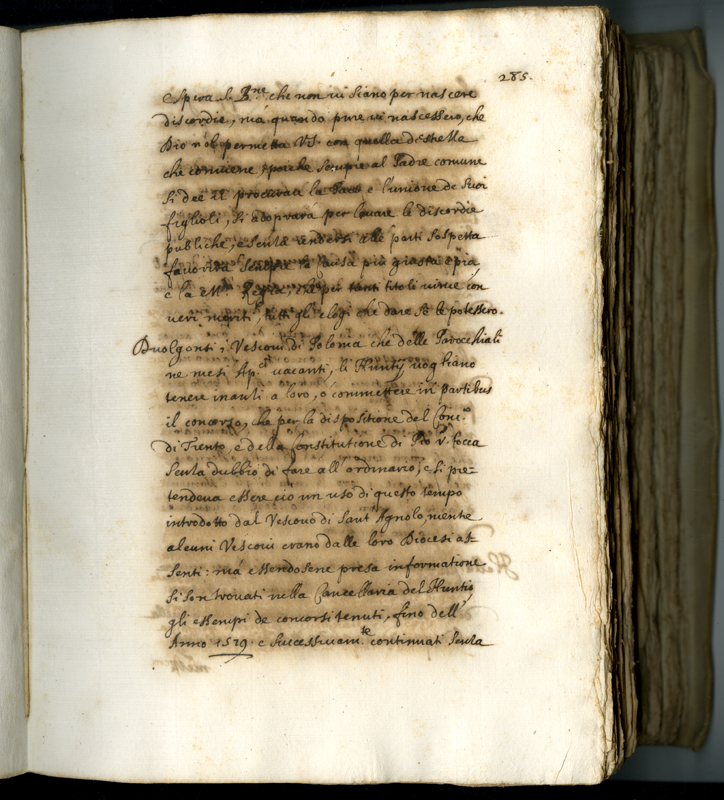 285.
Spera S. B.ne che non vi siano per nascere
discordie, mà quando pure vi nascessero, che
Dio nol permetta VS. con quella destrezza
che conviene, poiche sempre al Padre comune
si dee il procurare la Pace e l'unione de Suoi
figlioli, si adoprarà per levare le discordie
publiche, e senza rendersi alle parti sospetta
favorirà sempre la causa più giusta e pia
e la M.tà Regia, che per tanti titoli vivue con
veri meriti, tutti gli elogi che dare se le potessero.
Duolgonsi i Vescovi di Polonia che delle Parochiali
ne mesi Ap.ci vacanti, li Nuntij vogliano
tenere inanti a loro, ò commettere in partibus
il concorso, che per la dispositione del Conc.o
di Trento, e della Constitutione di Pio V. tocca
senza dubbio di fare all'ordinario, e si pre=
tendeva essere ciò un uso di questo tempo
introdotto dal Vescovo di Sant'Agnolo, mentre
alcuni Vescovi erano dalle loro Diocesi as=
senti: mà essendosene presa informatione
si son trovati nella Cancellaria del Nuntio
gli essempi de concorsi tenuti, fino dell'
Anno 1579 e successivam.te continuati senza